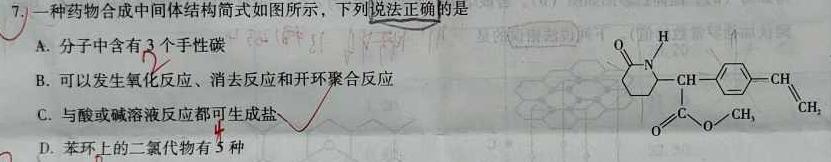 7. 一种药物合成中间体结构简式如图所示，下列说法正确的是
A. 分子中含有 3 个手性碳
2
B. 可以发生氧化反应、消去反应和开环聚合反应
C. 与酸或碱溶液反应都可生成盐
4
D. 苯环上的二氯代物有 5 种
H
O
N
CH
CH
CH₂
C
O
O
CH₃